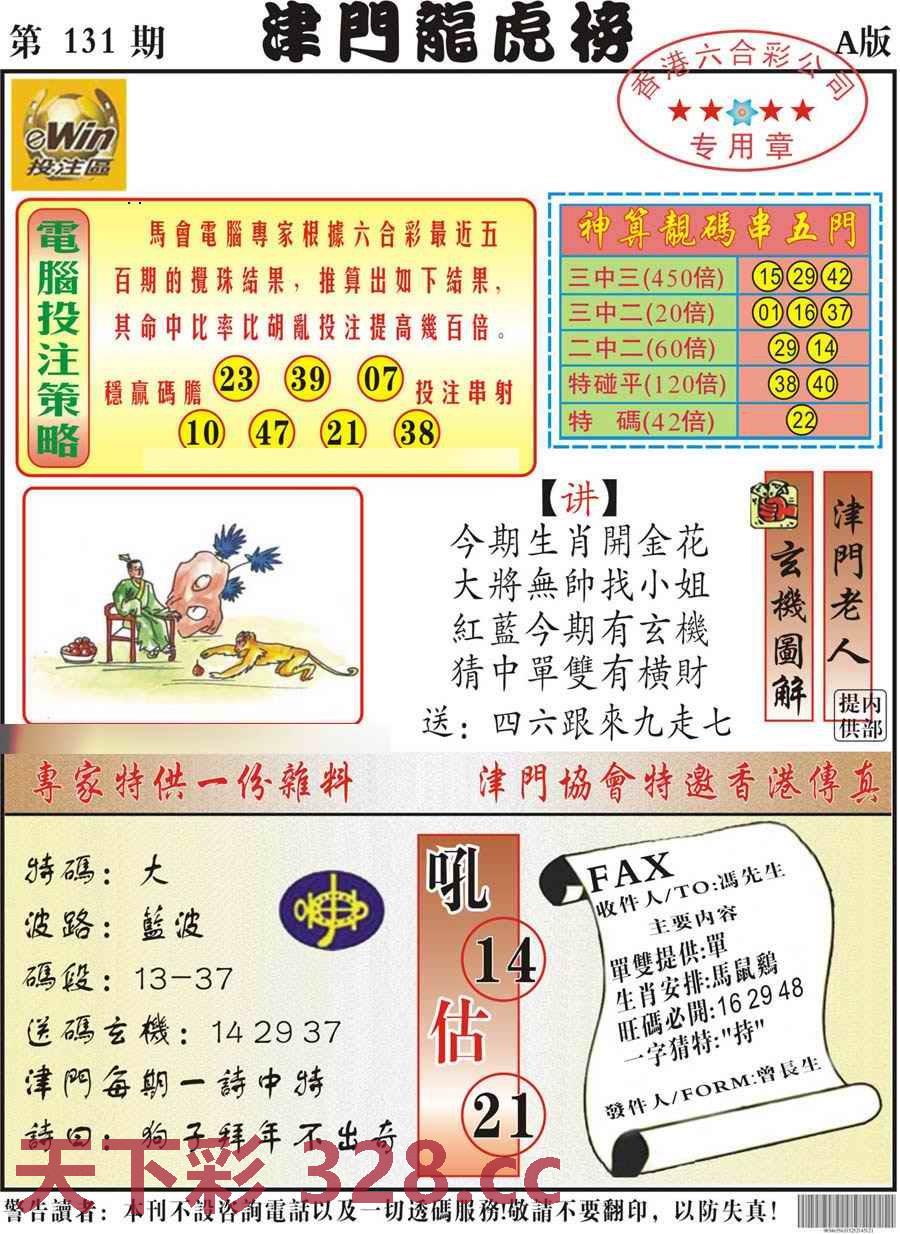 第 131 期
津門龍虎榜
A版
香港六合彩公司
专用章
eWin
投注區
電腦投注策略
馬會電腦專家根據六合彩最近五
百期的攪珠結果，推算出如下結果，
其命中比率比胡亂投注提高幾百倍。
穩贏碼膽 23 39 07 投注串射
10 47 21 38
神算靚碼串五門
三中三(450倍) 15 29 42
三中二(20倍) 01 16 37
二中二(60倍) 29 14
特碰平(120倍) 38 40
特 碼(42倍) 22
【讲】
今期生肖開金花
大將無帥找小姐
紅藍今期有玄機
猜中單雙有橫財
送：四六跟來九走七
玄機圖解
津門老人
内部提供
專家特供一份雜料
津門協會特邀香港傳真
特碼：大
波路：藍波
碼段：13-37
送碼玄機：14 29 37
津門每期一詩中特
詩曰：狗子拜年不出奇
吼
14
估
21
FAX
收件人/TO:馮先生
主要内容
單雙提供:單
生肖安排:馬鼠鷄
旺碼必開:16 29 48
一字猜特:"持"
發件人/FORM:曾長生
天下彩 328.cc
警告讀者：本刊不設咨詢電話以及一切透碼服務!敬請不要翻印，以防失真!